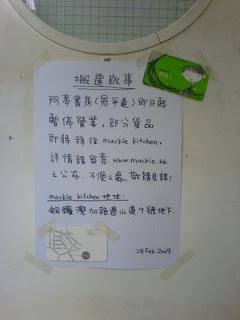 搬遷啟事
阿麥書房(恩平道)即日起
暫停營業，部分貨品
即將移往 mackie kitchen，
詳情請留意 www.mackie.hk
之公布．不便之處，敬請見諒！
mackie kitchen 地址：
銅鑼灣加路連山道9號地下．
28 Feb. 2009